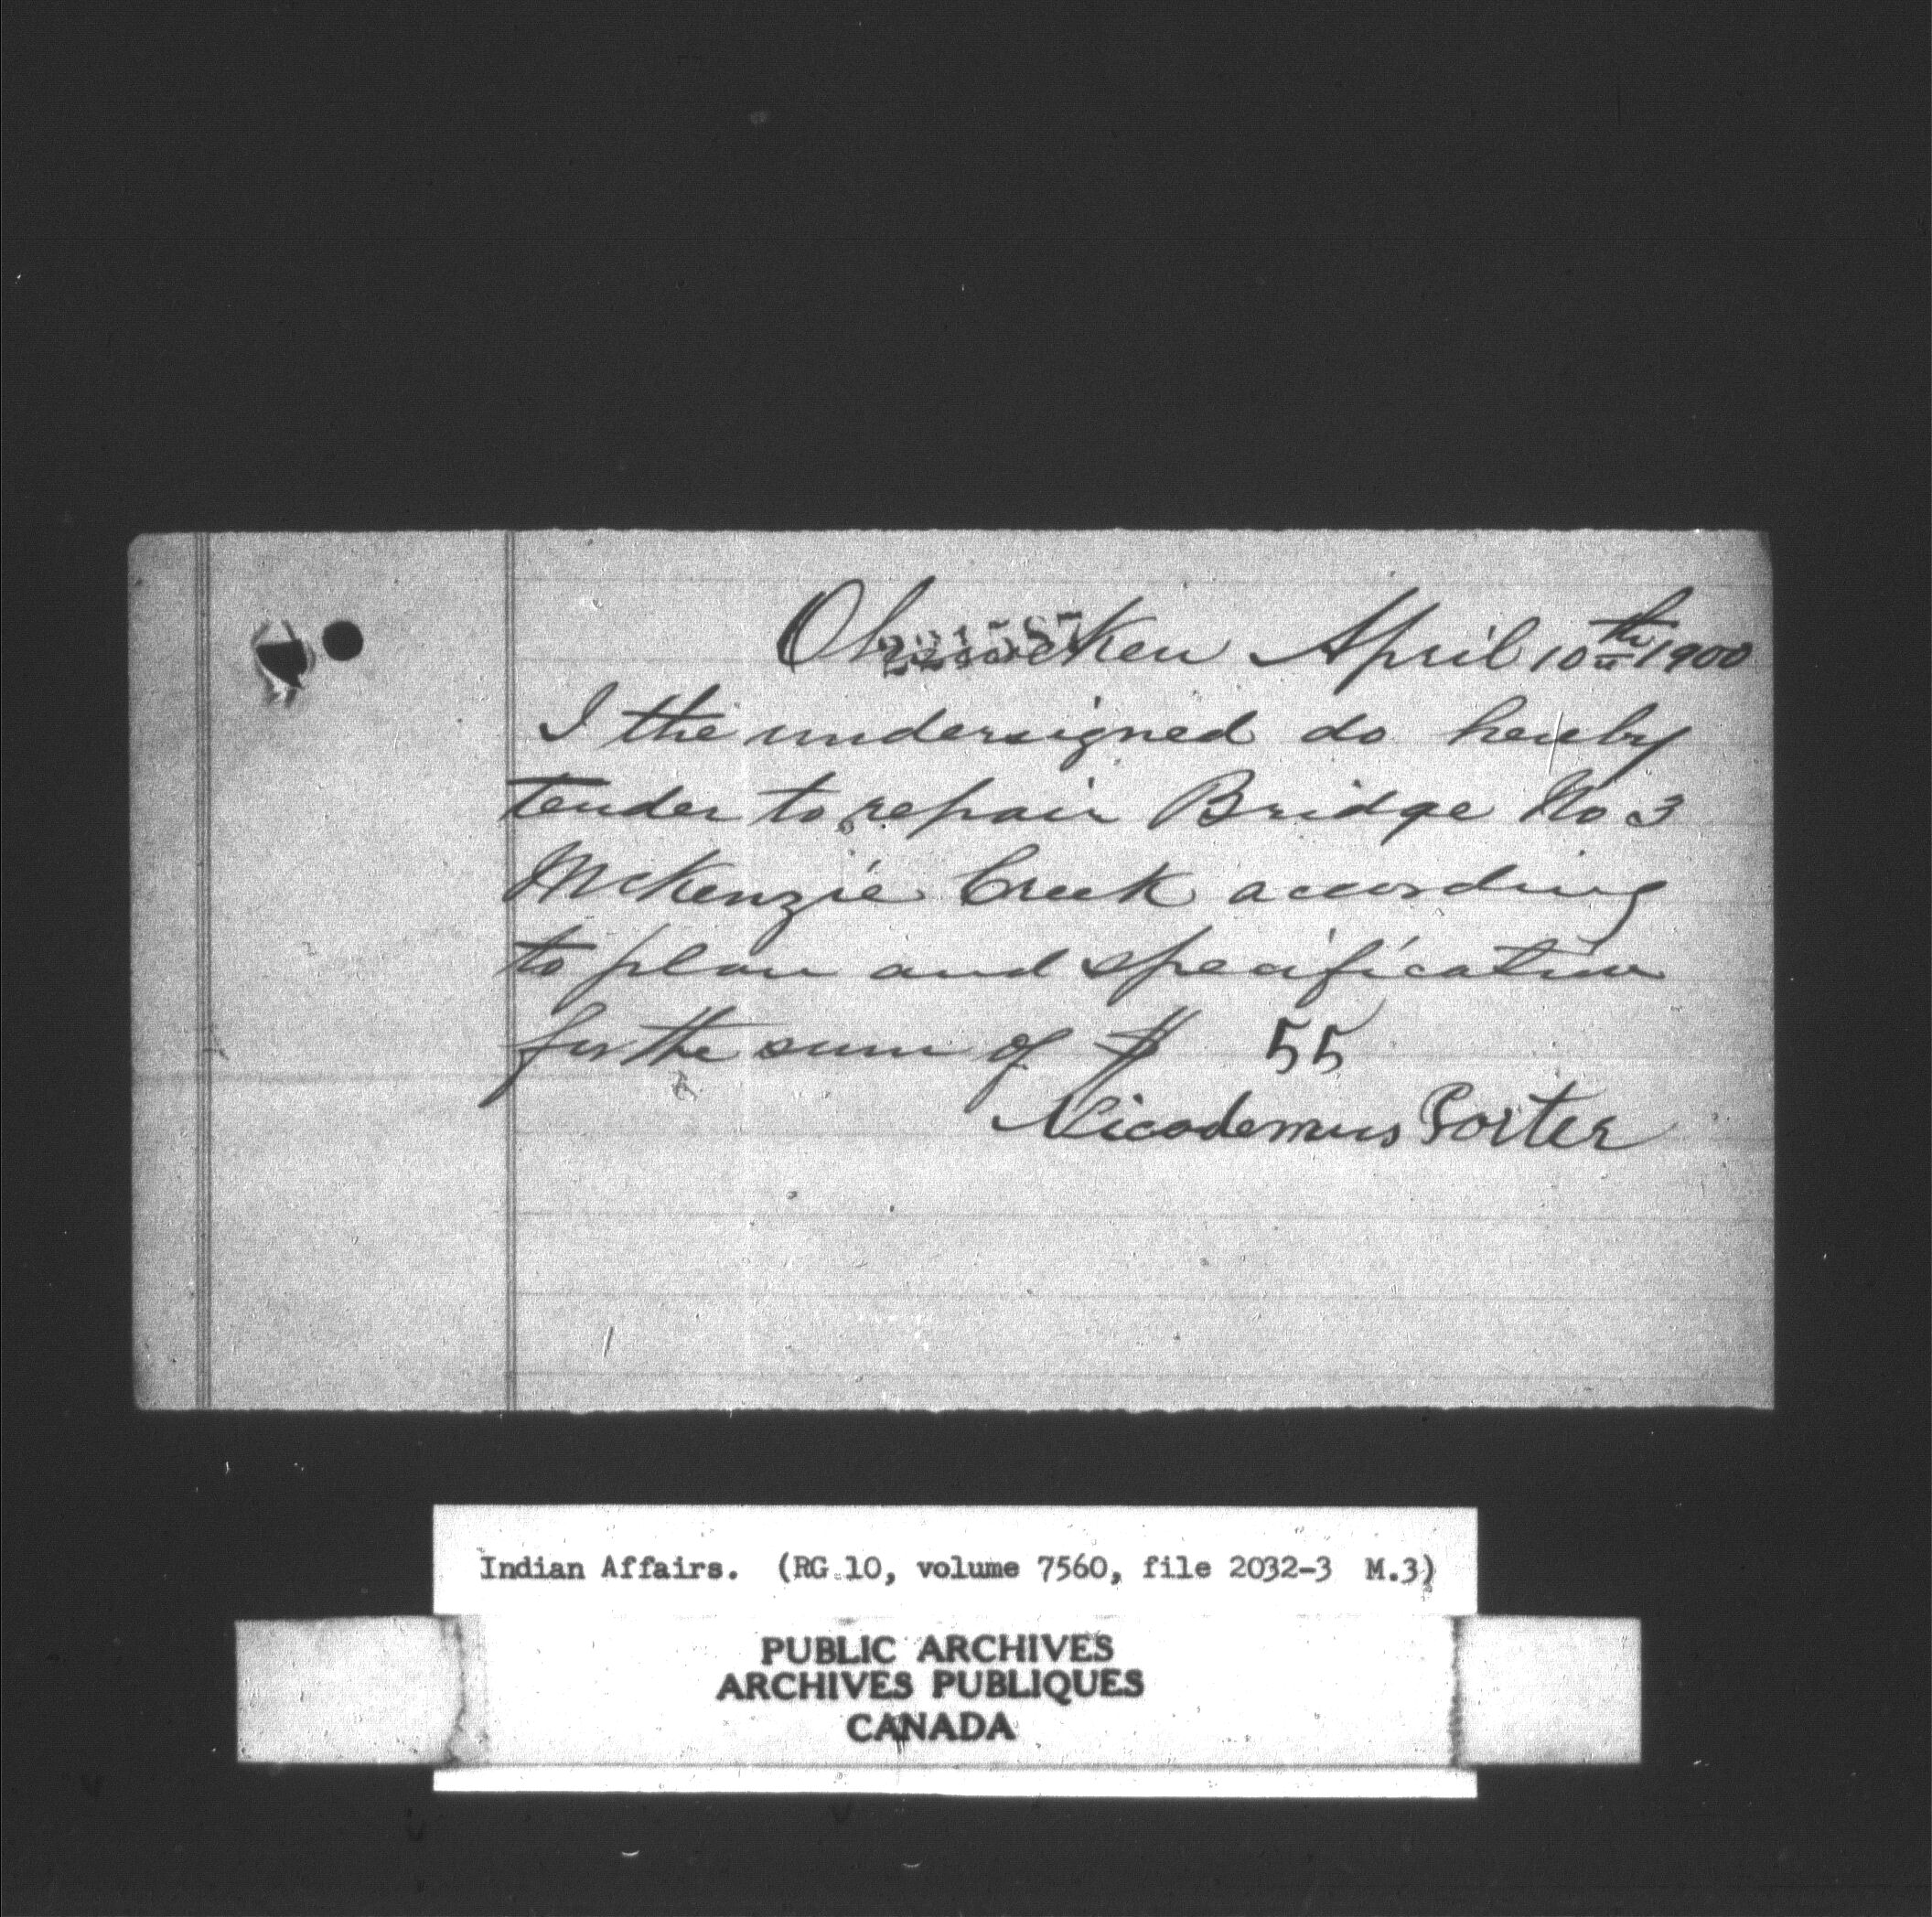 Ohsweken April 10th 1900
I the undersigned do hereby
tender to repair Bridge No 3
McKenzie Creek according
to plan and specification
for the sum of $ 55
Nicodemus Porter
Indian Affairs. (RG 10, volume 7560, file 2032-3 M.3)
PUBLIC ARCHIVES
ARCHIVES PUBLIQUES
CANADA